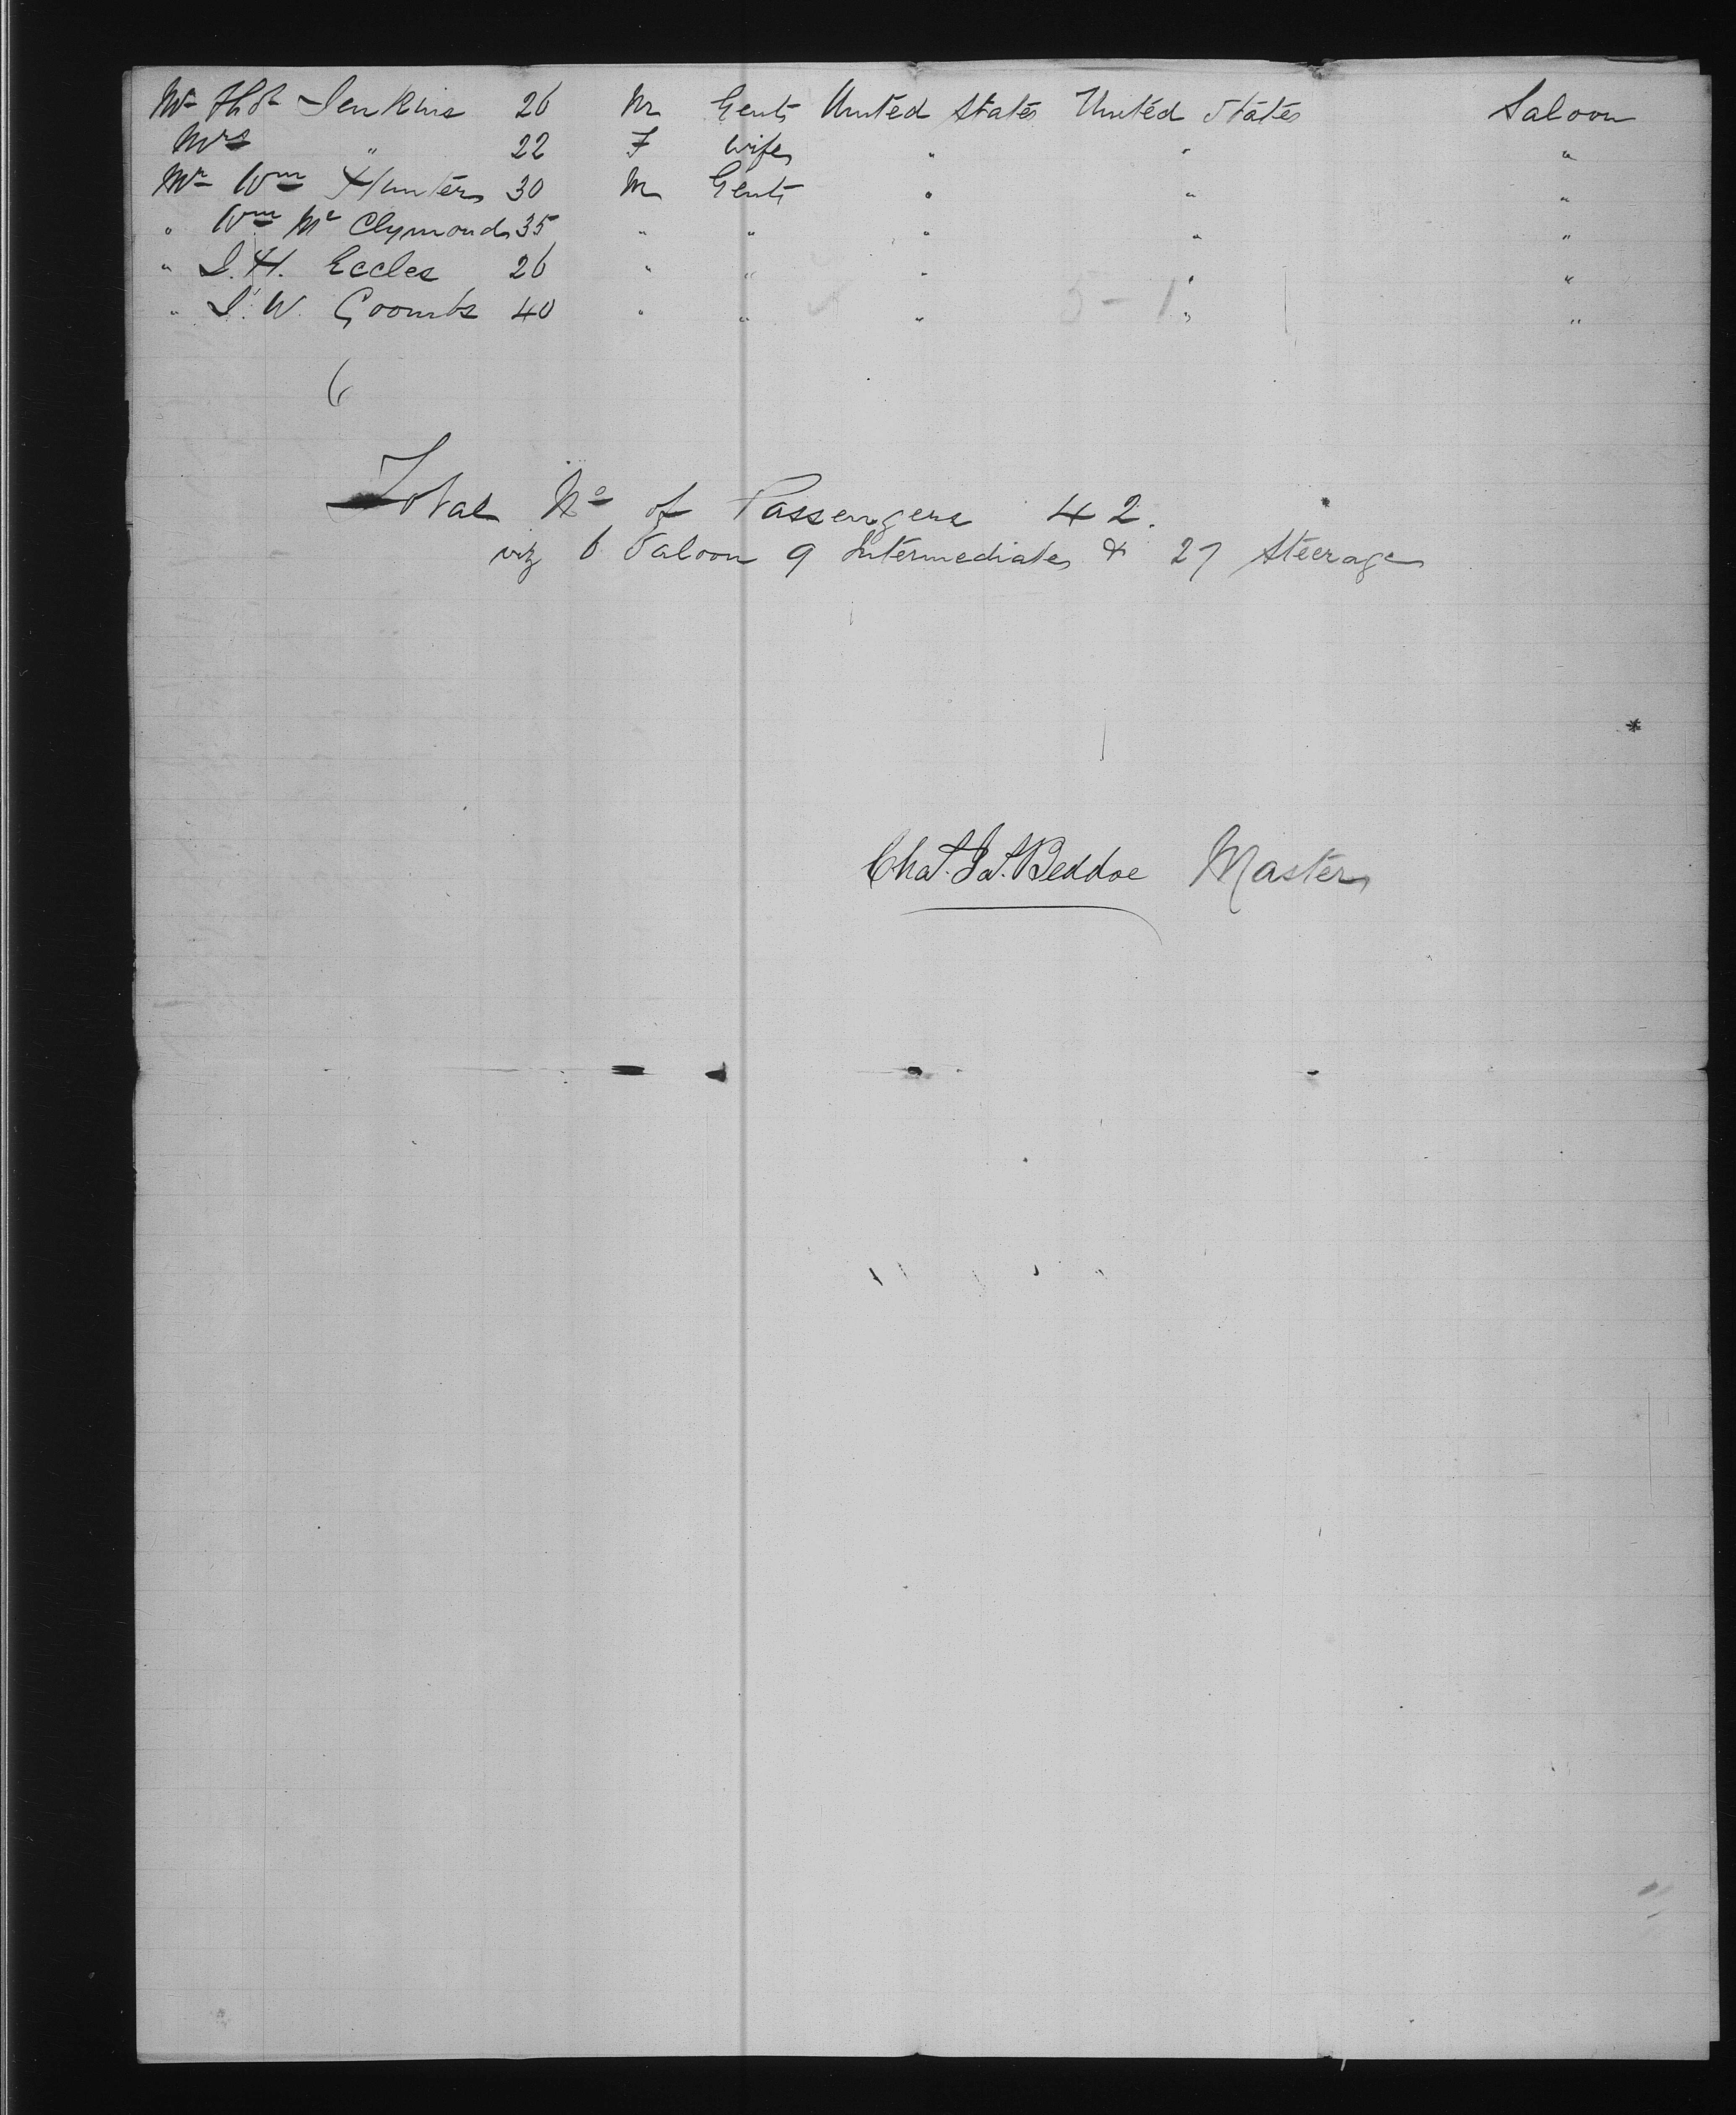 Mr Thos Jenkins 26 M Gent United States United States Saloon
Mrs " 22 F Wife " " "
Mr Wm Hunter 30 M Gent " " "
" Wm Mc Clymond 35 " " " " "
" J. H. Eccles 26 " " " " "
" J. W. Coombs 40 " " " 5 - 1 " "
6
Total No of Passengers 42.
viz 6 Saloon 9 Intermediate & 27 Steerage
Chas. Jas. Beddoe Master